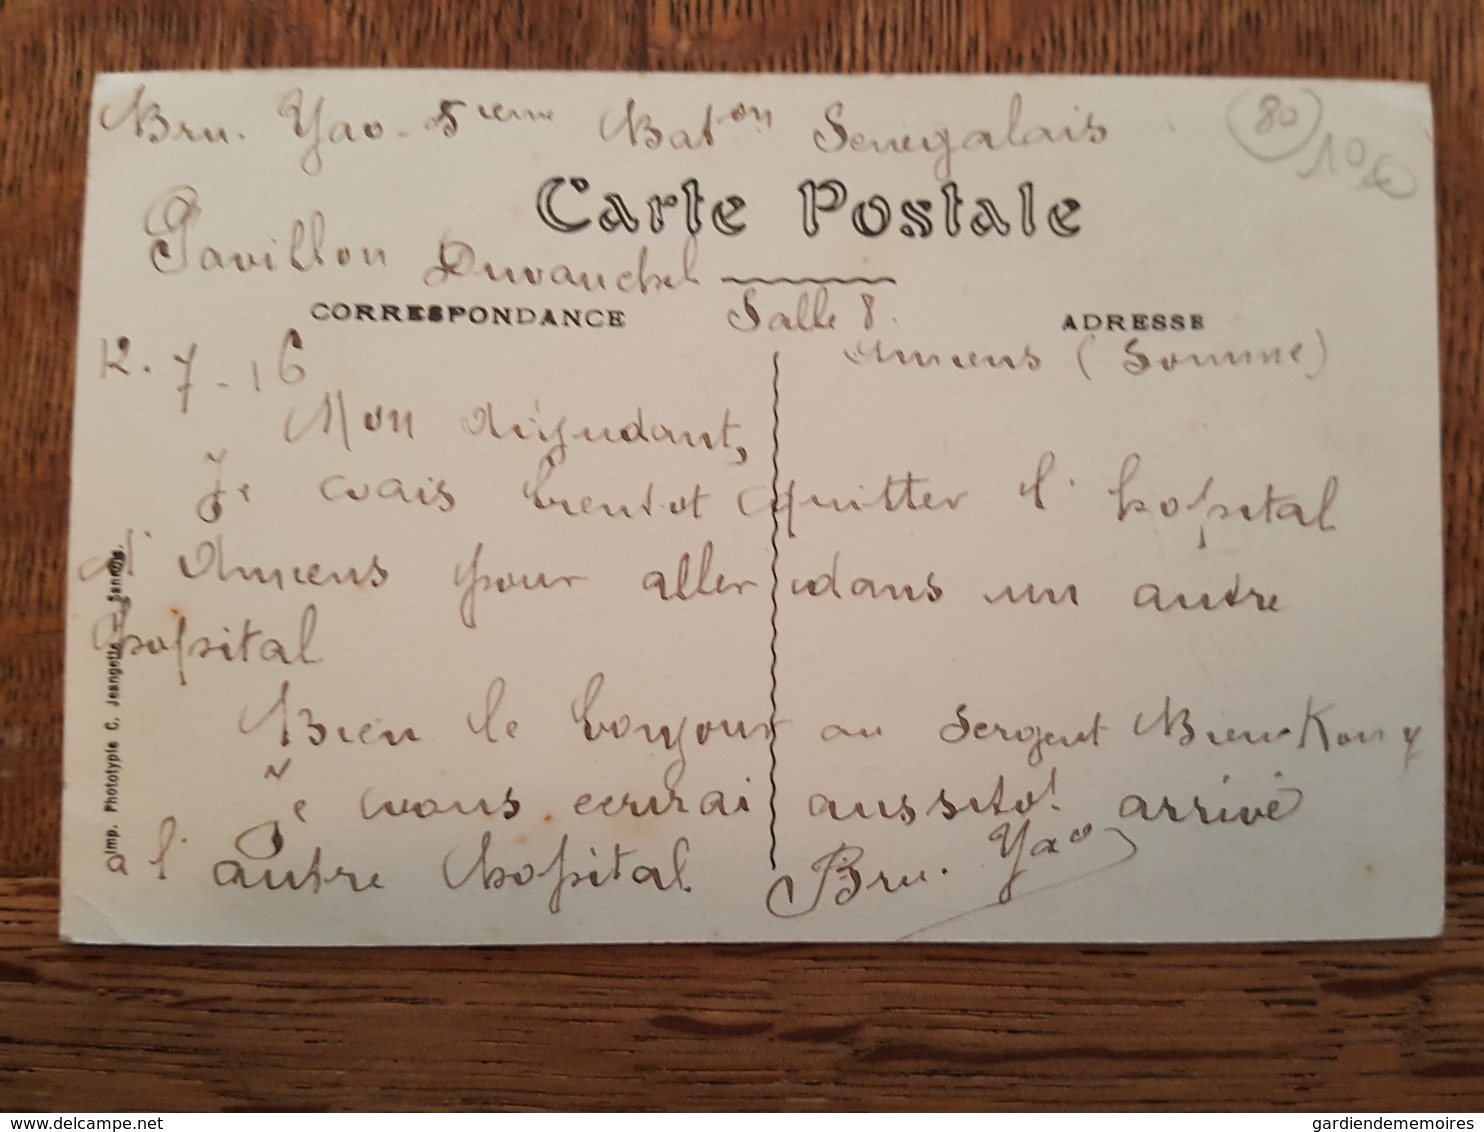 Bru. Yao - 5ieme Baton Senegalais
80
10
Carte Postale
Pavillon Duvauchel
Salle 8.
CORRESPONDANCE
ADRESSE
Amiens (Somme)
12.7-16
Mon Adjudant,
Je vais bientot quitter l'hopital
d'Amiens pour aller dans un autre
hopital
Bien le bonjour au Sergent
Je vous ecrirai aussitot arrivé
a l'autre hopital Bru. Yao
Imp. Phototypie C. Jeangette - Sannois.
delcampe.net
gardiendememoires